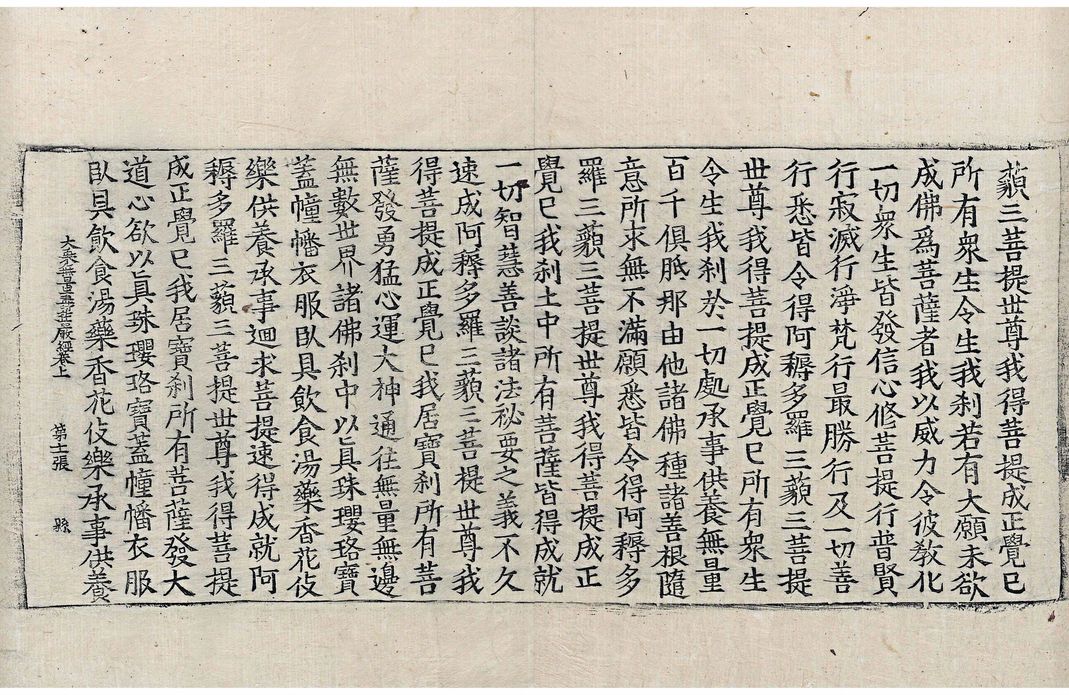 藐三菩提世尊我得菩提成正覺已
所有衆生令生我刹若有大願未欲
成佛爲菩薩者我以威力令彼教化
一切衆生皆發信心修菩提行普賢
行寂滅行淨梵行最勝行及一切善
行悉皆令得阿耨多羅三藐三菩提
世尊我得菩提成正覺已所有衆生
令生我刹於一切處承事供養無量
百千俱胝那由他諸佛種諸善根隨
意所求無不滿願悉皆令得阿耨多
羅三藐三菩提世尊我得菩提成正
覺已我刹土中所有菩薩皆得成就
一切智慧善談諸法祕要之義不久
速成阿耨多羅三藐三菩提世尊我
得菩提成正覺已我居寶刹所有菩
薩發勇猛心運大神通往無量無邊
無數世界諸佛刹中以真珠瓔珞寶
蓋幢幡衣服臥具飲食湯藥香花伎
樂供養承事迴求菩提速得成就阿
耨多羅三藐三菩提世尊我得菩提
成正覺已我居寶刹所有菩薩發大
道心欲以眞珠瓔珞寶蓋幢幡衣服
臥具飲食湯藥香花伎樂承事供養
大乘無量壽莊嚴經卷上 第十二張 縣